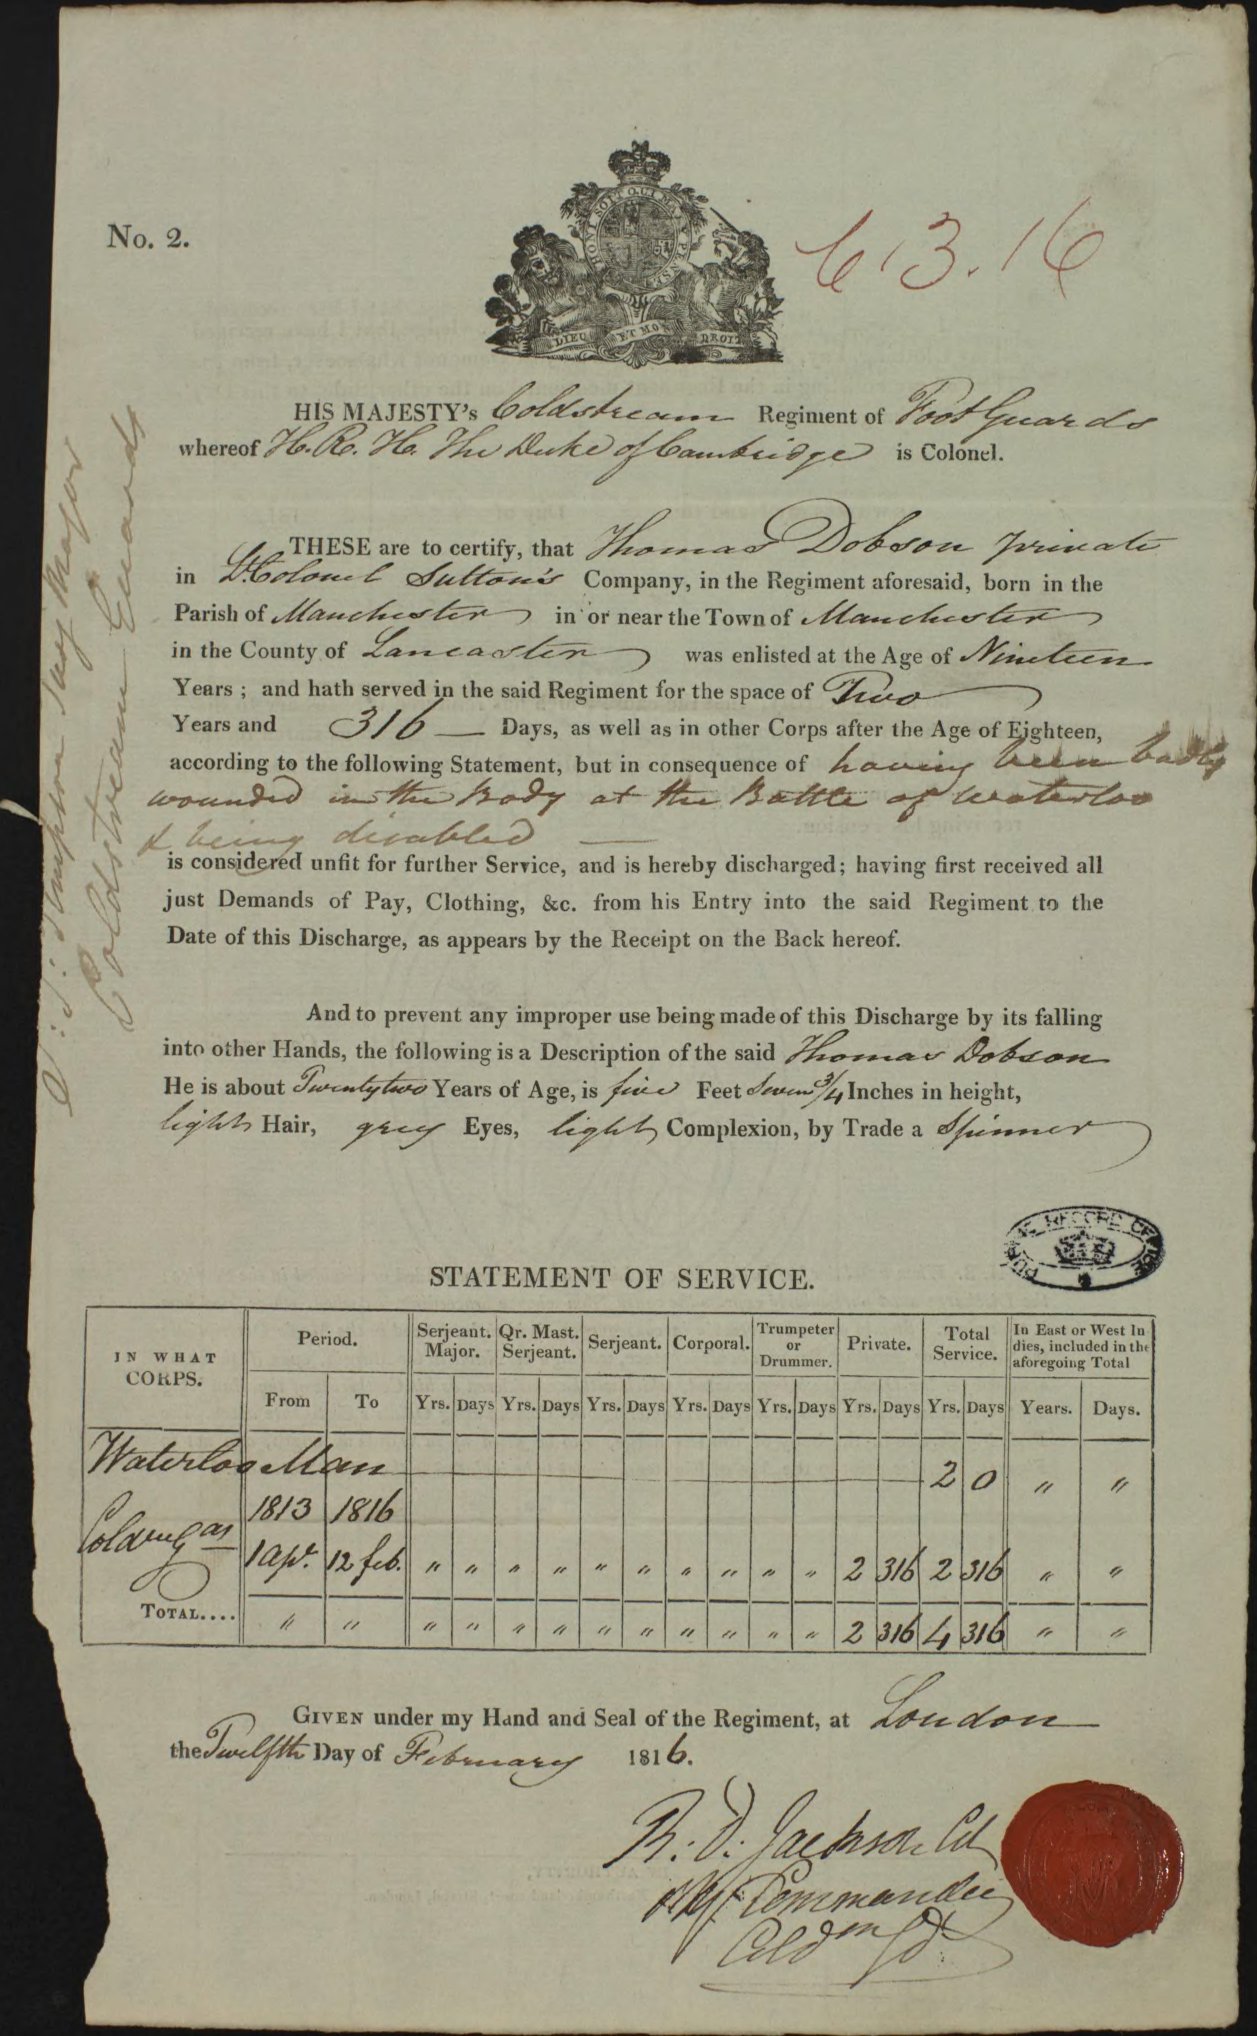 No. 2.
HONI SOIT QUI MAL Y PENSE
DIEU ET MON DROIT
6.3.16
HIS MAJESTY's Coldstream Regiment of Foot Guards
whereof H. R. H. The Duke of Cambridge is Colonel.
THESE are to certify, that Thomas Dobson private
in Lt. Colonel Sutton's Company, in the Regiment aforesaid, born in the
Parish of Manchester in or near the Town of Manchester
in the County of Lancaster was enlisted at the Age of Nineteen
Years ; and hath served in the said Regiment for the space of Two
Years and 316 — Days, as well as in other Corps after the Age of Eighteen,
according to the following Statement, but in consequence of having been badly
wounded in the Body at the Battle of Waterloo
& being disabled —
is considered unfit for further Service, and is hereby discharged; having first received all
just Demands of Pay, Clothing, &c. from his Entry into the said Regiment to the
Date of this Discharge, as appears by the Receipt on the Back hereof.
And to prevent any improper use being made of this Discharge by its falling
into other Hands, the following is a Description of the said Thomas Dobson
He is about Twenty two Years of Age, is five Feet Seven 3/4 Inches in height,
light Hair, grey Eyes, light Complexion, by Trade a Spinner
Simpson Surg Major
Coldstream Guards
PUBLIC RECORD OFFICE
STATEMENT OF SERVICE.
IN WHAT CORPS. Period. Serjeant Major. Qr. Mast. Serjeant. Serjeant. Corporal. Trumpeter or Drummer. Private. Total Service. In East or West Indies, included in the aforegoing Total
From To Yrs. Days Yrs. Days Yrs. Days Yrs. Days Yrs. Days Yrs. Days Yrs. Days Years. Days.
Waterloo Man 2 0 " "
1813 1816
Coldm Gds 1 Apr. 12 feb. " " " " " " " " " " 2 316 2 316 " "
TOTAL.... " " " " " " " " " " " " 2 316 4 316 " "
GIVEN under my Hand and Seal of the Regiment, at London
the Twelfth Day of February 1816.
R. D. Jackson Col
Commanding
Coldm Gds